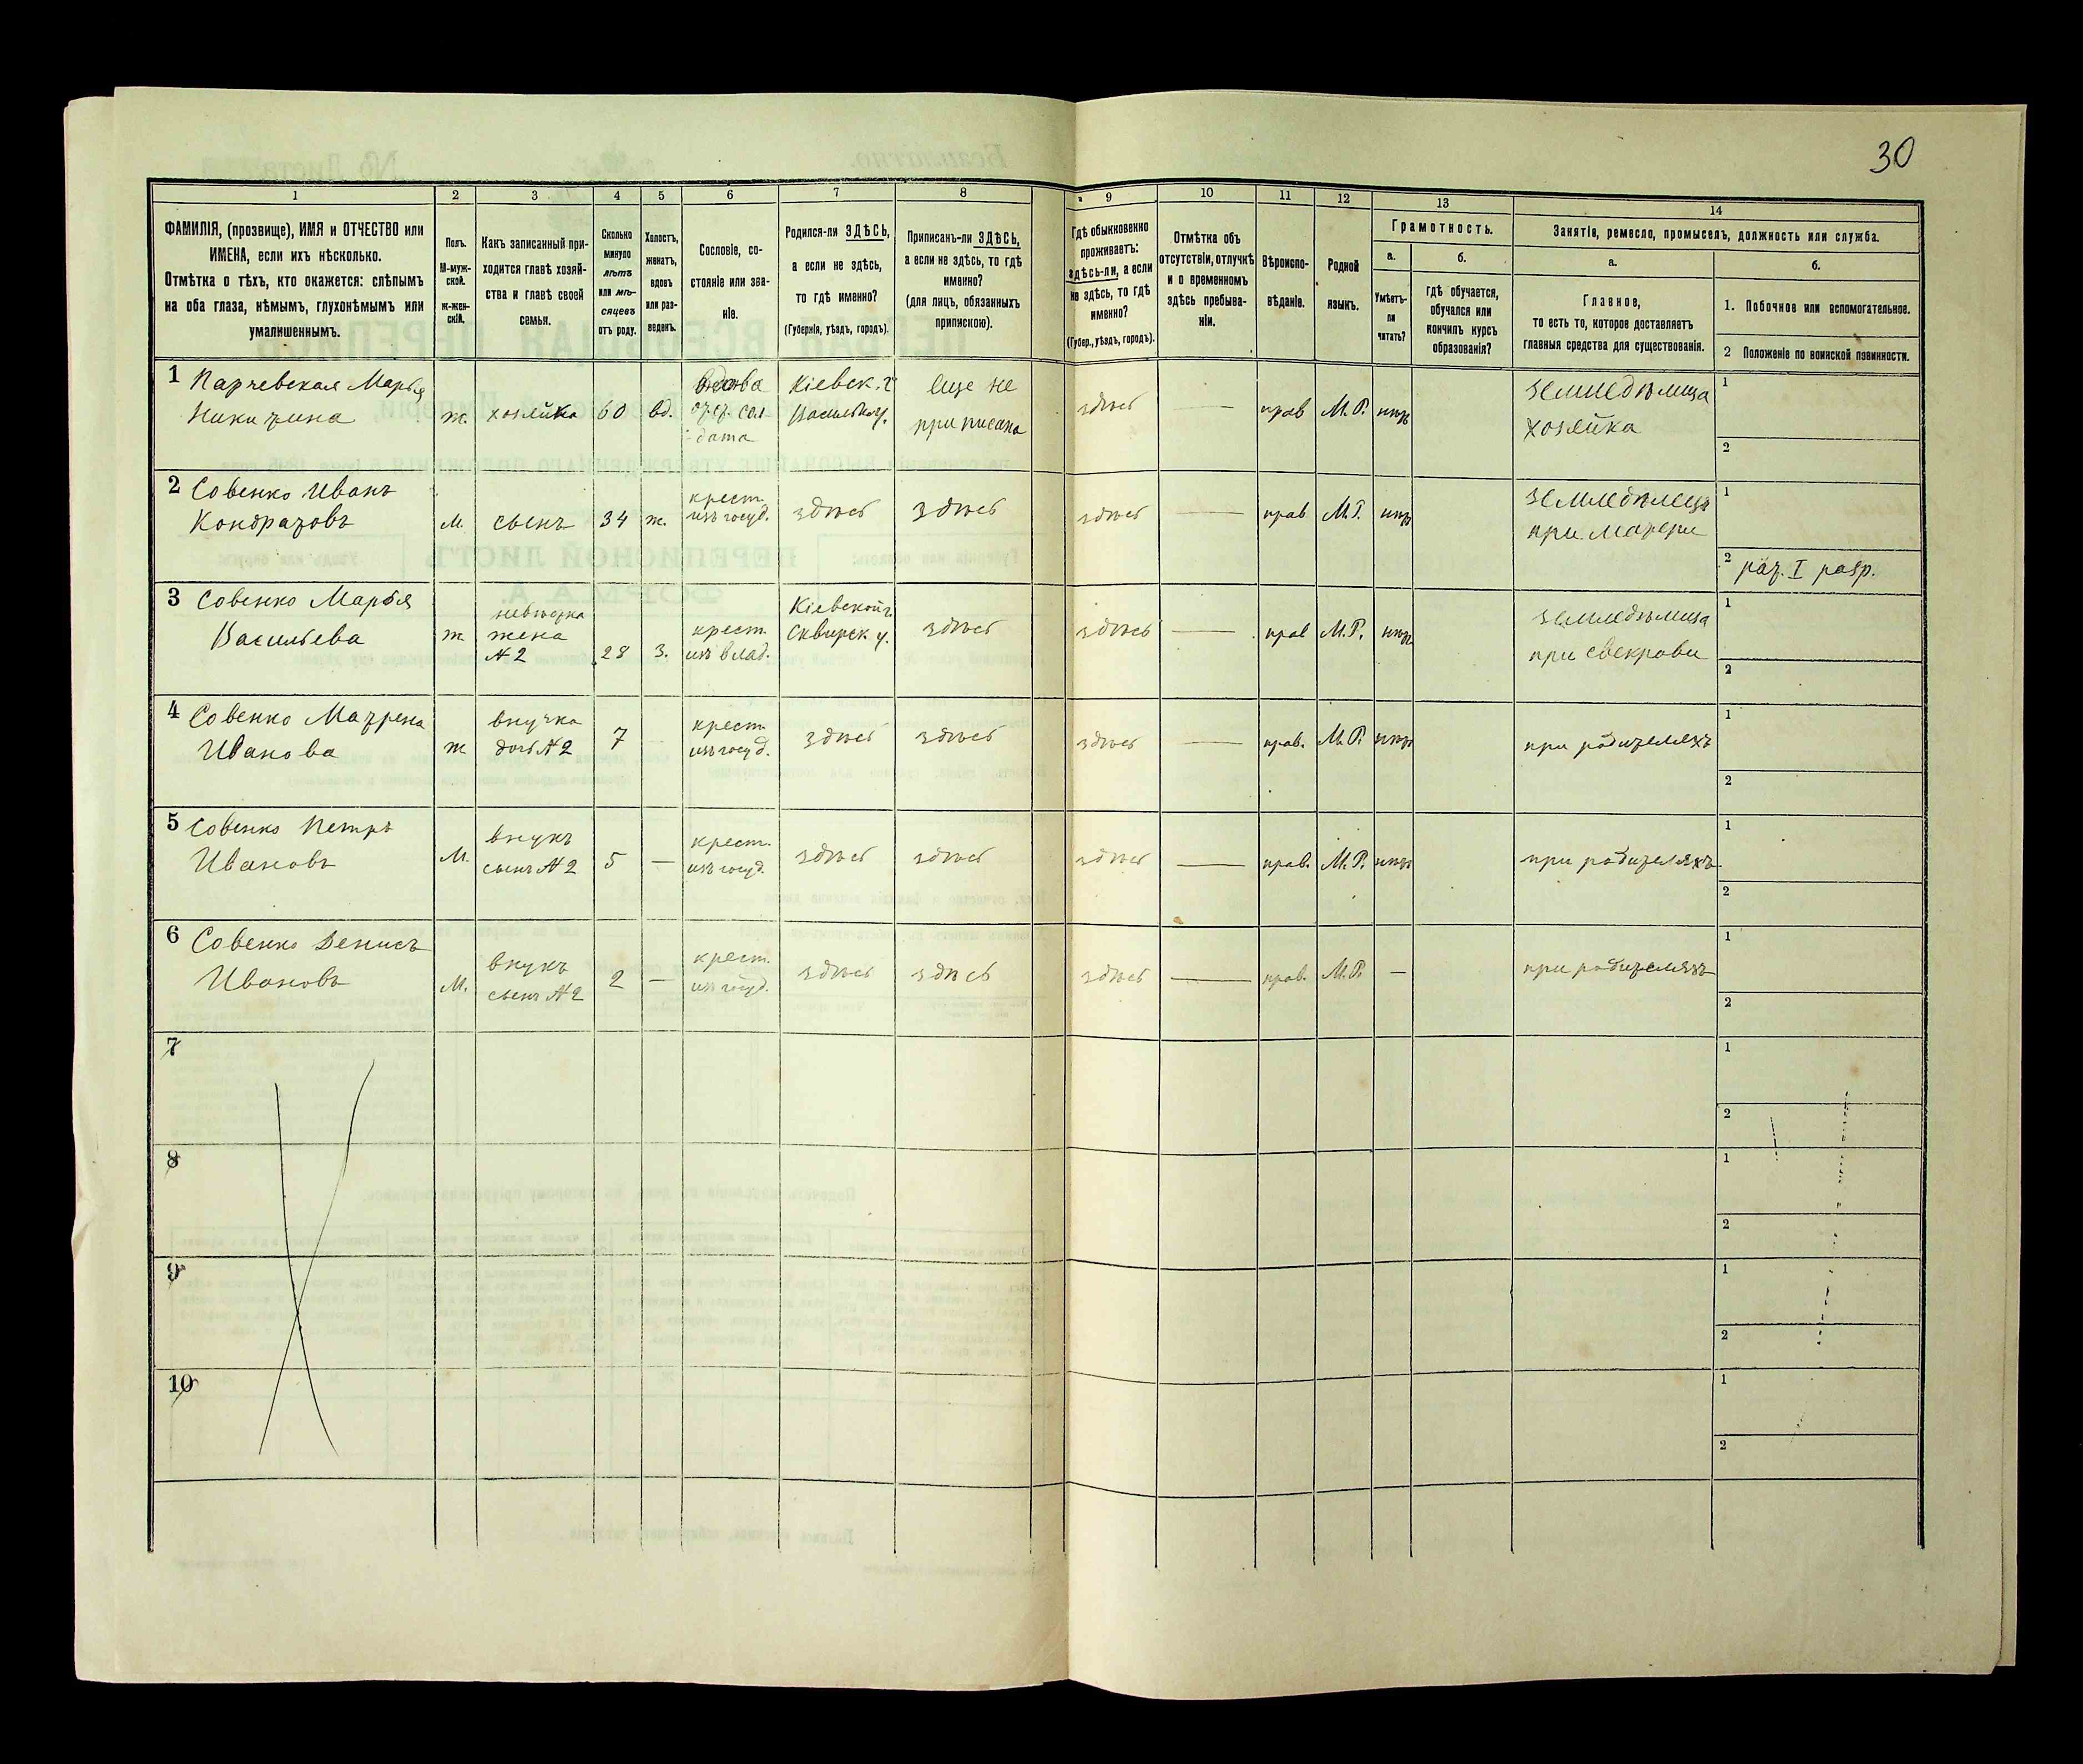 30
1 2 3 4 5 6 7 8 9 10 11 12 13 14
ФАМИЛІЯ, (прозвище), ИМЯ и ОТЧЕСТВО или
ИМЕНА, если ихъ нѣсколько.
Отмѣтка о тѣхъ, кто окажется: слѣпымъ
на оба глаза, нѣмымъ, глухонѣмымъ или
умалишеннымъ.
Полъ.
М-муж-
ской.
ж-жен-
скій.
Какъ записанный при-
ходится главѣ хозяй-
ства и главѣ своей
семьи.
Сколько
минуло
лѣтъ
или мѣ-
сяцевъ
отъ роду.
Холостъ,
женатъ,
вдовъ
или раз-
веденъ.
Сословіе, со-
стояніе или зва-
ніе.
Родился-ли ЗДѢСЬ,
а если не здѣсь,
то гдѣ именно?
(Губернія, уѣздъ, городъ).
Приписанъ-ли ЗДѢСЬ,
а если не здѣсь, то гдѣ
именно?
(для лицъ, обязанныхъ
припискою).
Гдѣ обыкновенно
проживаетъ:
здѣсь-ли, а если
не здѣсь, то гдѣ
именно?
(Губер., уѣздъ, городъ).
Отмѣтка объ
отсутствіи, отлучкѣ
и о временномъ
здѣсь пребыва-
ніи.
Вѣроиспо-
вѣданіе.
Родной
языкъ.
Грамотность.
а.
Умѣетъ-
ли
читать?
б.
гдѣ обучается,
обучался или
кончилъ курсъ
образованія?
Занятіе, ремесло, промыселъ, должность или служба.
а.
Главное,
то есть то, которое доставляетъ
главныя средства для существованія.
б.
1. Побочное или вспомогательное.
2 Положеніе по воинской повинности.
1 Парчевская Марья
Никитина
ж. хозяйка 60 вд.
вдова
отст. сол
дата
Кіевск. г
Васильк у.
еще не
приписана
здѣсь — прав М.Р. нѣтъ
земледѣлица
хозяйка
1
2
2 Совенко Иванъ
Кондратовъ
м. сынъ 34 ж.
крест.
изъ госуд.
здѣсь здѣсь здѣсь — прав М.Р. нѣтъ
земледѣлецъ
при матери
1
2 рат. I разр.
3 Совенко Марья
Васильева
ж
невѣстка
жена
№ 2
28 з.
крест.
изъ влад.
Кіевской г
Сквирск у.
здѣсь здѣсь — прав М.Р. нѣтъ
земледѣлица
при свекрови
1
2
4 Совенко Матрена
Иванова
ж
внучка
дочь № 2
7
крест.
изъ госуд.
здѣсь здѣсь здѣсь — прав. М.Р. нѣтъ
при родителяхъ
1
2
5 Совенко Петръ
Ивановъ
М.
внукъ
сынъ № 2
5 —
крест.
изъ госуд.
здѣсь здѣсь здѣсь — прав. М.Р. нѣтъ
при родителяхъ
1
2
6 Совенко Денисъ
Ивановъ
М.
внукъ
сынъ № 2
2 —
крест.
изъ госуд.
здѣсь здѣсь здѣсь — прав. М.Р. —
при родителяхъ
1
2
7
1
2
8
1
2
9
1
2
10
1
2